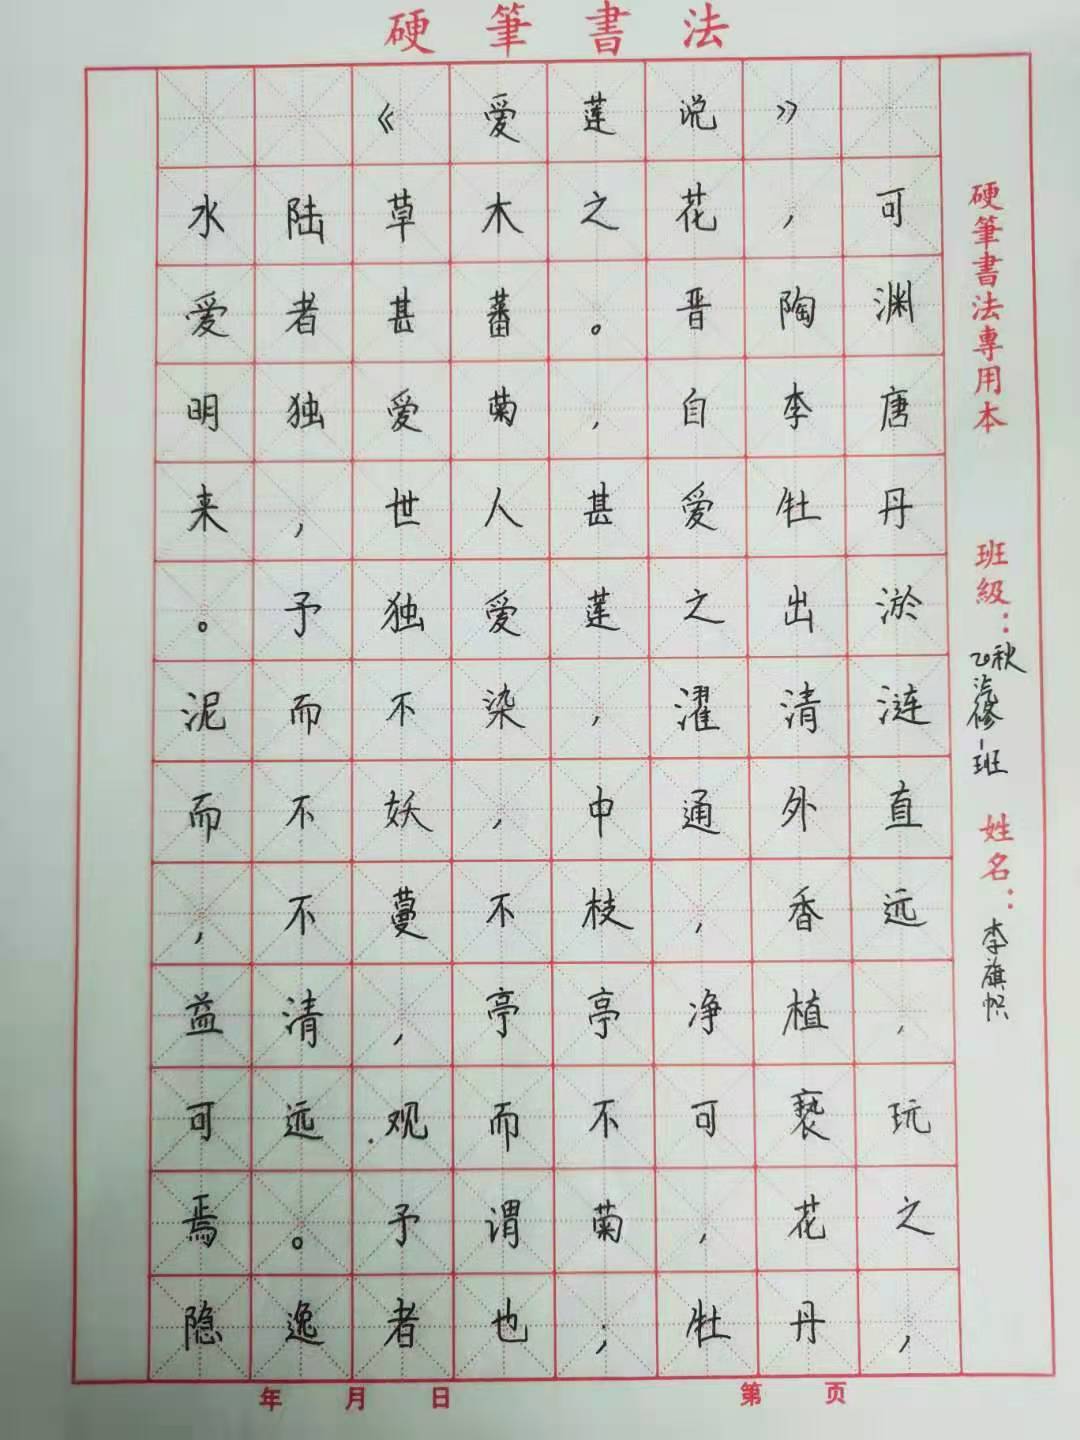 硬筆書法
《爱莲说》
水陆草木之花,可
爱者甚蕃。晋陶渊
明独爱菊,自李唐
来,世人甚爱牡丹
。予独爱莲之出淤
泥而不染,濯清涟
而不妖,中通外直
,不蔓不枝,香远
益清,亭亭净植,
可远观而不可亵玩
焉。予谓菊,花之
隐逸者也;牡丹,
硬筆書法專用本
班級:20秋汽修一班
姓名:李旗帜
年 月 日 第 页